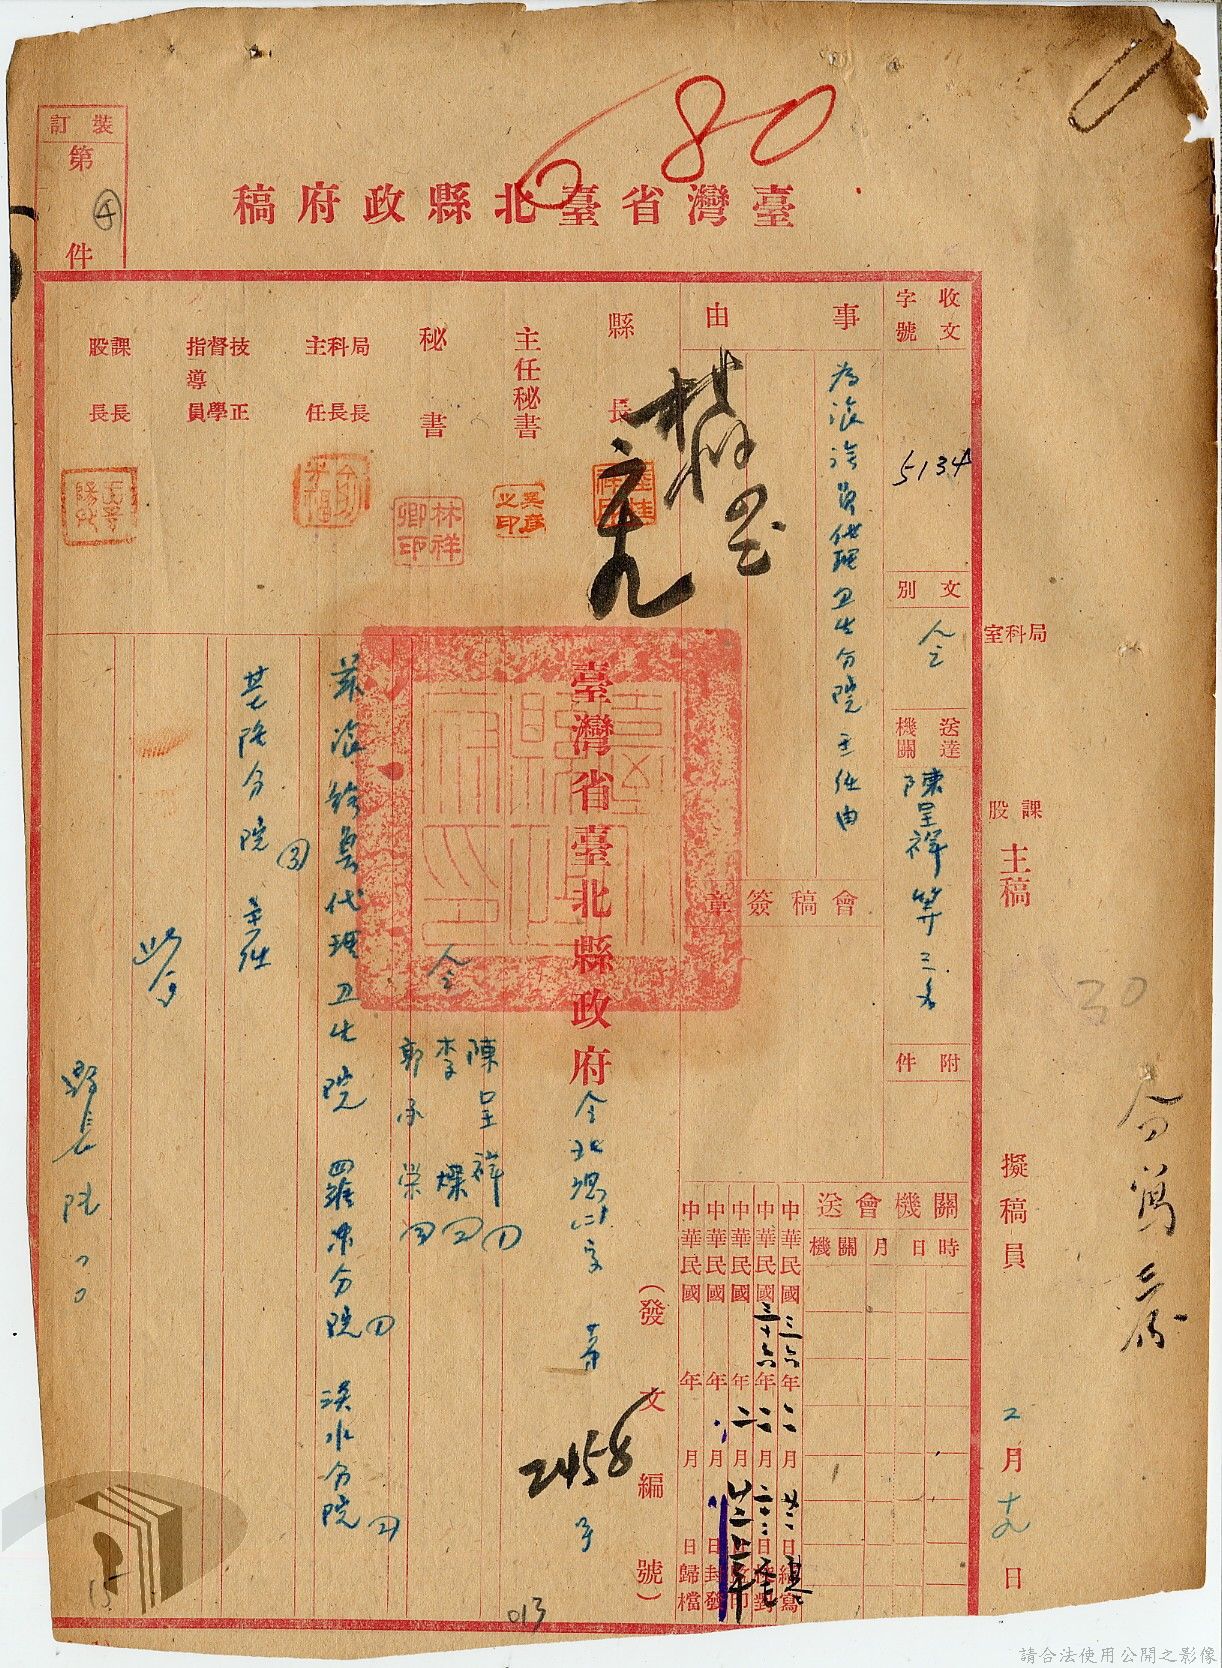 680
臺灣省臺北縣政府稿
裝訂
第
4
件
收文
字號
5134
文別
令
送達
機關
陳呈祥等三名
附件
事由
為派該員代理卫生分院主任由
會稿簽章
縣長
主任秘書
秘書
林祥
卿印
局長
科長
主任
技正
督學
指導員
課長
股長
局科室
課股
主稿
擬稿員
2月十九日
關機會送
時日月
關機
中華民國三六年二月廿二日繕寫
中華民國三十六年二月二十二日校對
中華民國年二月廿二日
中華民國年月日封發
中華民國年月日歸檔
(發文編號)
臺灣省臺北縣政府
第
2458
号
令
陳呈祥(1)
李燦(2)
郭
茲派該員代理卫生院
分院(1)
淡水分院(2)
分院(3)
主任
此令
縣長陸
30
015
013
15
請合法使用公開之影像